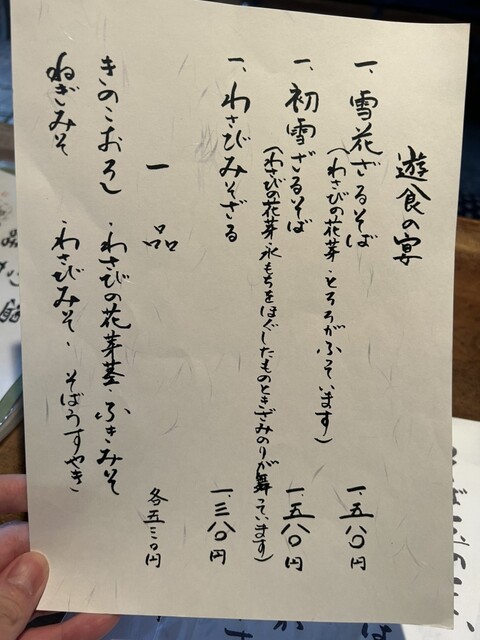 遊食の宴
一、雪花ざるそば 一、五八〇円
(わさびの花芽、とろろがふっています)
一、初雪ざるそば 一、五八〇円
(わさびの花芽、氷もちをほぐしたものときざみのりが舞っています)
一、わさびみそざる 一、三八〇円
一品 各五三〇円
きのこおろし、わさびの花芽茎、ふきみそ
ねぎみそ、わさびみそ、そばうすやき